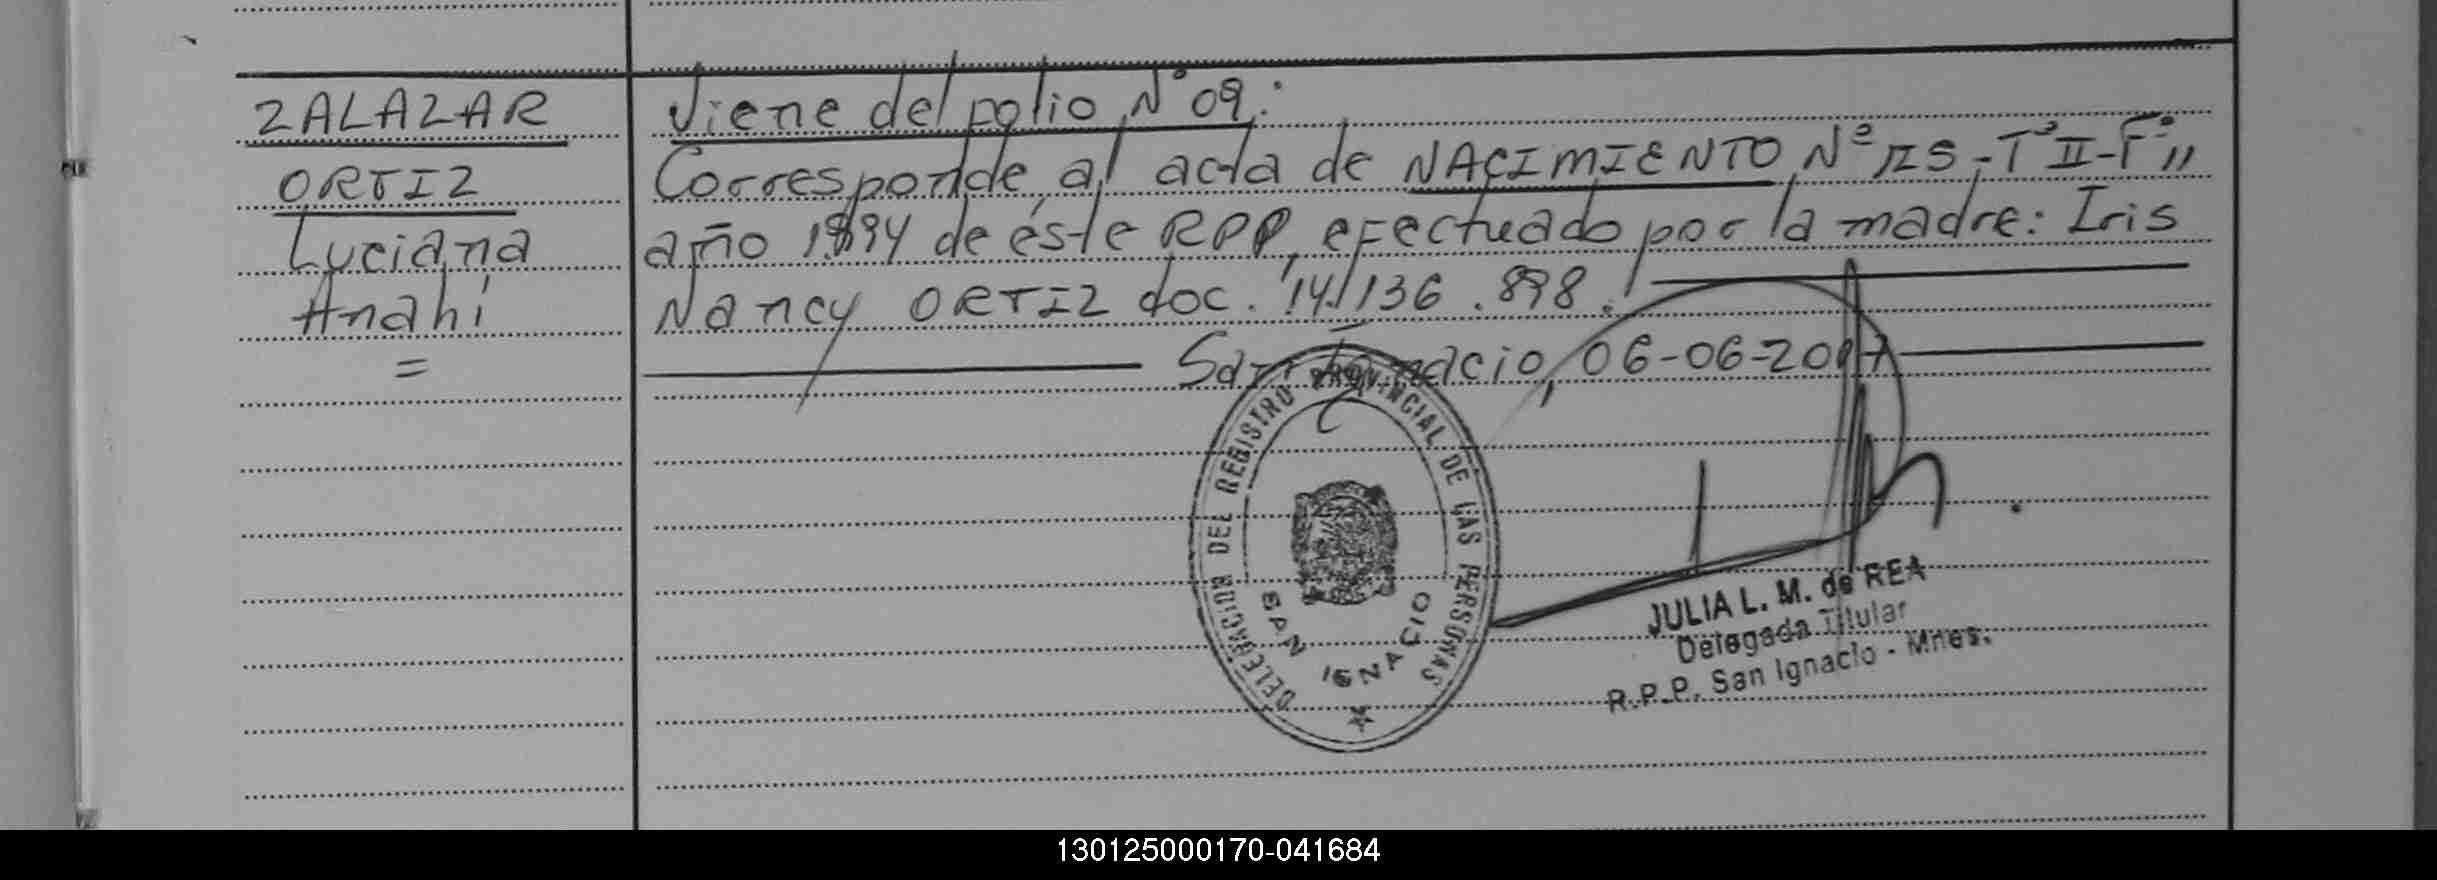 ZALAZAR
ORTIZ
Luciana
Anahí
=
Viene del folio N° 09:
Corresponde al acta de NACIMIENTO N° - T° II - F° 11
año 1994 de éste RPP, efectuado por la madre: Iris
Nancy ORTIZ doc. 14.136.898.
San Ignacio, 06-06-2007
DELEGACION DEL REGISTRO PROVINCIAL DE LAS PERSONAS
SAN IGNACIO
JULIA L. M. de REA
Delegada Titular
R.P.P. San Ignacio - Mnes.
130125000170-041684